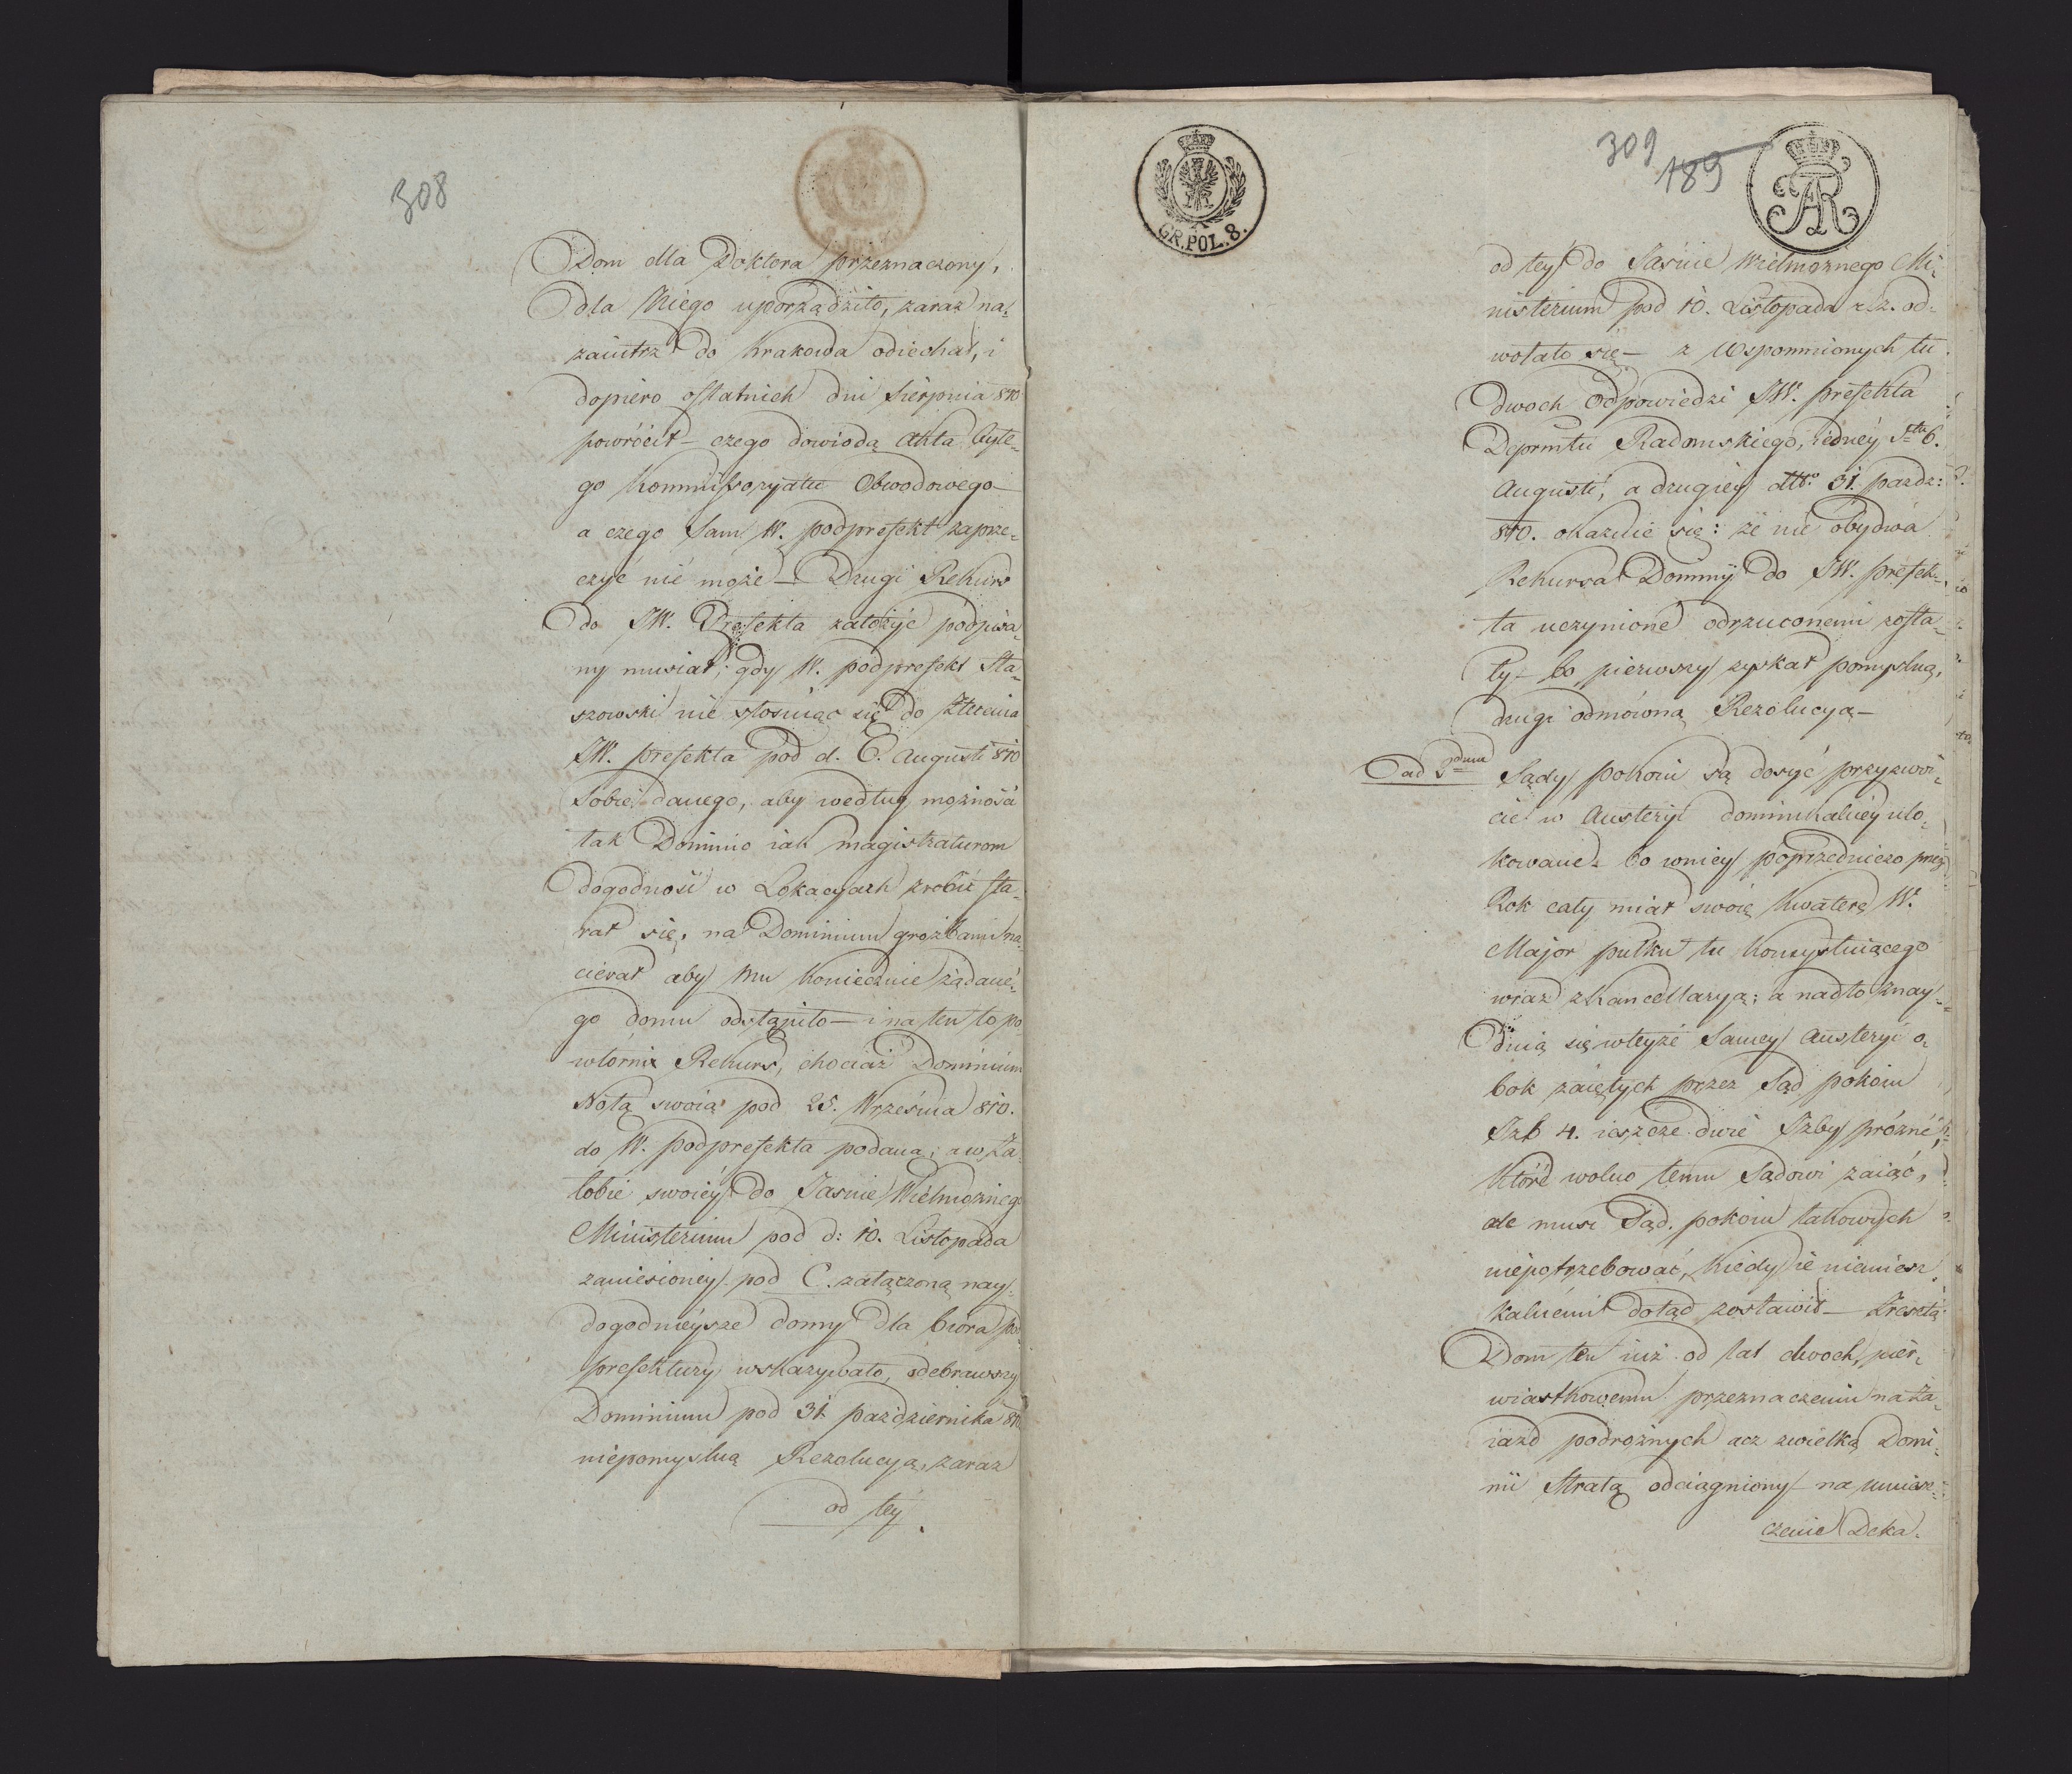 308
Dom dla Doktora przeznaczony,
dla Niego uporządziło, zaraz na¬
zaiutrz do Krakowa odiechał, i
dopiero ostatnich dni Sierpnia 810
powrócił – czego dowiodą Akta byłe¬
go Kommissoryatu Obwodowego –
a czego Sam W. podprefekt zaprze¬
czyć nié może – Drugi Rekurs
do JW. Prefekta założyć podpisa¬
ny musiał; gdy W. podprefekt Sta¬
szowski nie stosuiąc się do Zlecenia
JW. prefekta pod d. 6. Augusti 810
Sobie danego, aby według możności
tak Dominio iak Magistraturom
dogodność w Lokacyach zrobić sta¬
rał się, na Dominium groźbami na¬
cierał aby mu koniecznie żądané¬
go domu odstąpiło – i na ten to po
wtórny Rekurs, chociaż Dominium
Notą swoią pod 25. Września 810.
do W. podprefekta podaną; a w Ża¬
łobie swoiéy do Jaśnie Wielmożnego
Ministerium pod d: 10. Listopada
zaniesionéy pod C. załączoną nay¬
dogodniéysze domy dla biora pod¬
prefektury wskazywało, odebrawszy
Dominium pod 31 października 810
niepomyslną Rezolucyą, zaraz
od téy
GR.POL.8.
309
189
od téy do Jaśnie Wielmożnego Mi¬
nisterium pod 10. Listopada r. z. od¬
wołało się – z Wspomnionych tu
dwoch Odpowiedzi JW. prefekta
Deprmtu Radomskiego, iednéy 6.
Augusti, a drugiéy dtto 31. pazdz:
810. okazuie się: że nie obydwa
Rekursa Dominij do JW. prefek¬
ta uczynione odrzuconemi zosta¬
ły – bo pierwszy zyskał pomyslną,
drugi odmówną Rezolucyą –
Ad 2dum Sądy pokoiu są dosyć przyzwoi¬
cie w Austeryi dominikalnéy ulo¬
kowane – bo w niéy poprzedniczo przez
Rok cały miał swoię kwaterę W.
Major pułku tu konsystuiącego
wraz z Kancellaryą; a nadto znay¬
duią się w téyże Saméy Austeryi o¬
bok zaiętych przez Sąd pokoiu
Izb 4. ieszcze dwie Izby próżné,
któré wolno temu Sądowi zaiąć,
ale musi Sąd. pokoiu takowych
niepotrzebować, kiedy ie niemiesz¬
kalnémi dotąd zostawił – Zresztą
Dom ten iuż od lat dwoch, pier¬
wiastkowemu przeznaczeniu na Za¬
iazd podrożnych acz z wielką Domi¬
nii Stratą odciągniony – na umiesz¬
czenie Deka¬